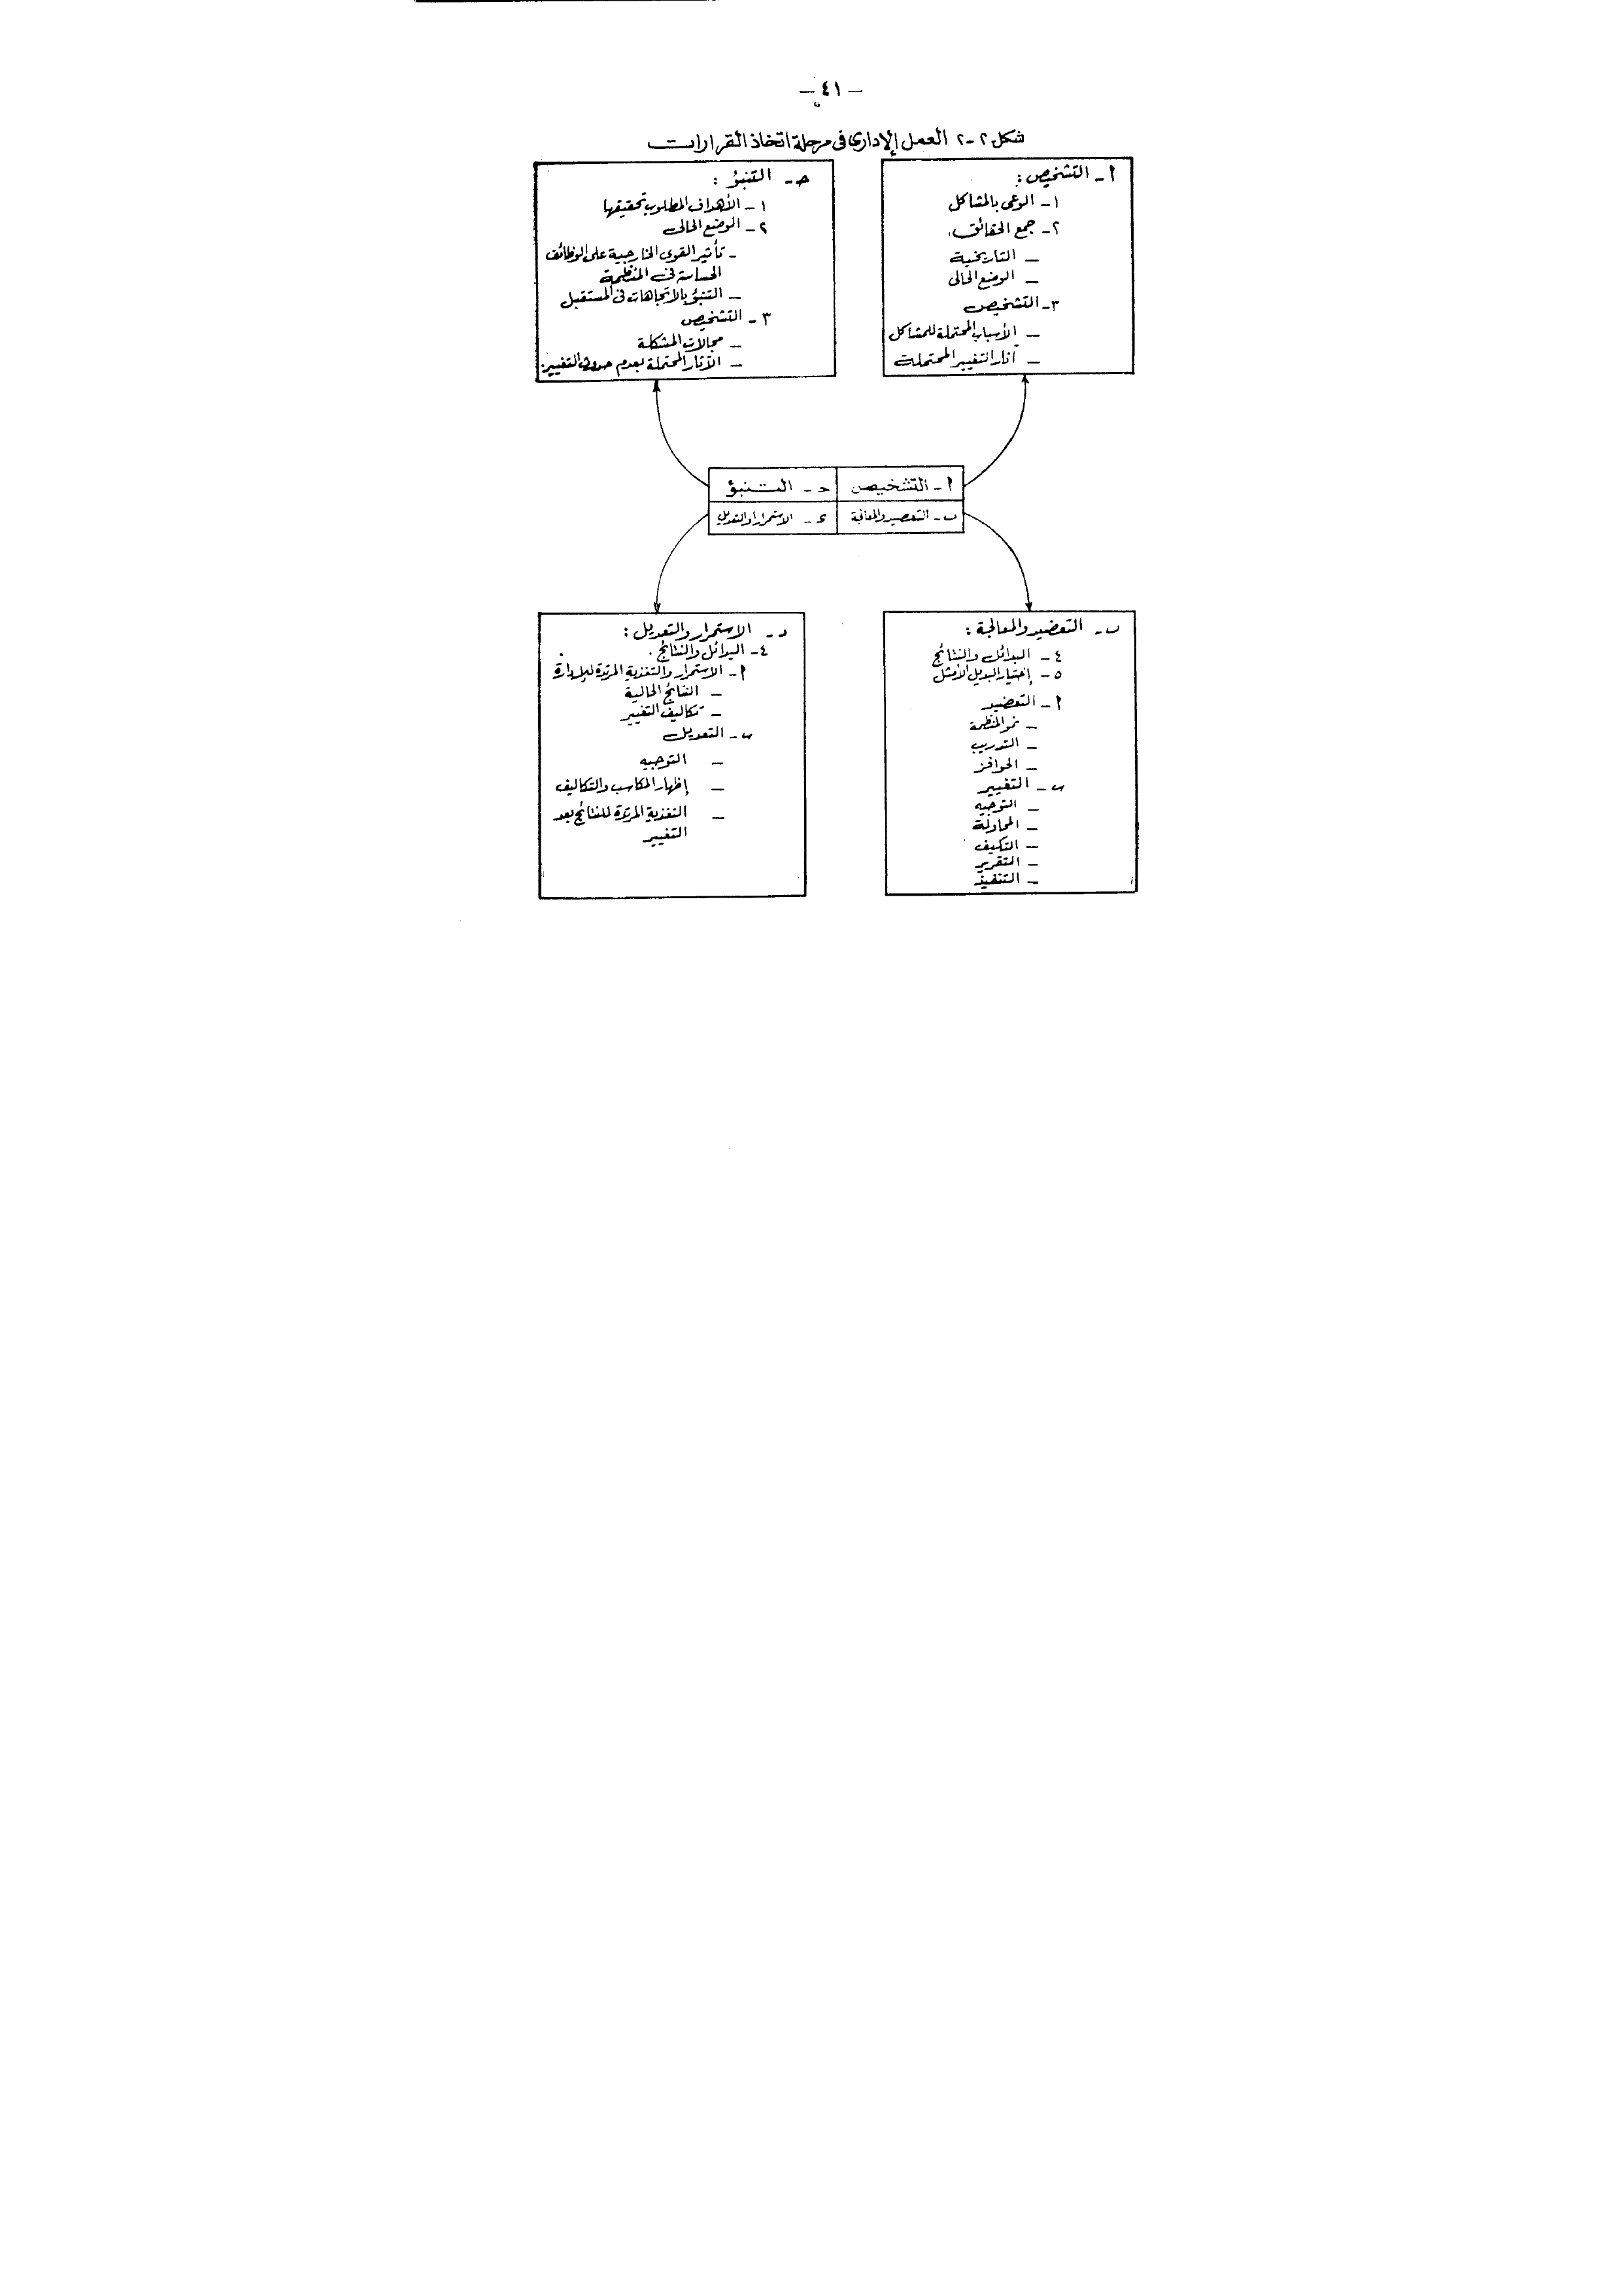 — ٤١ —
شكل ٢-٢ العمل الإدارى فى مرحلة اتخاذ القرارات
أ- التشخيص :
١- الوعى بالمشاكل
٢- جمع الحقائق
— التاريخية
— الوضع الحالى
٣- التشخيص
— الأسباب المحتملة للمشاكل
— آثار التغيير المحتملة
حـ- التنبؤ :
١- الأهداف المطلوب تحقيقها
٢- الوضع الحالى
- تأثير القوى الخارجية على الوظائف
الحساسة فى المنظمة
— التنبؤ بالاتجاهات فى المستقبل
٣- التشخيص
— مجالات المشكلة
— الآثار المحتملة بعدم حدوث التغيير
أ- التشخيص
حـ- التنبؤ
ب- التعضيد والمعالجة
د- الاستمرار والتعديل
ب- التعضيد والمعالجة :
٤- البدائل والنتائج
٥- إختيار البديل الأمثل
أ- التعضيد
— نمو المنظمة
— التدريب
— الحوافز
ب- التغيير
— التوجيه
— المحاولة
— التكيف
— التقرير
— التنفيذ
د- الاستمرار والتعديل :
٤- البدائل والنتائج
أ- الاستمرار والتغذية المرتدة للإدارة
— النتائج الحالية
— تكاليف التغيير
ب- التعديل
— التوجيه
— إظهار المكاسب والتكاليف
— التغذية المرتدة للنتائج بعد
التغيير